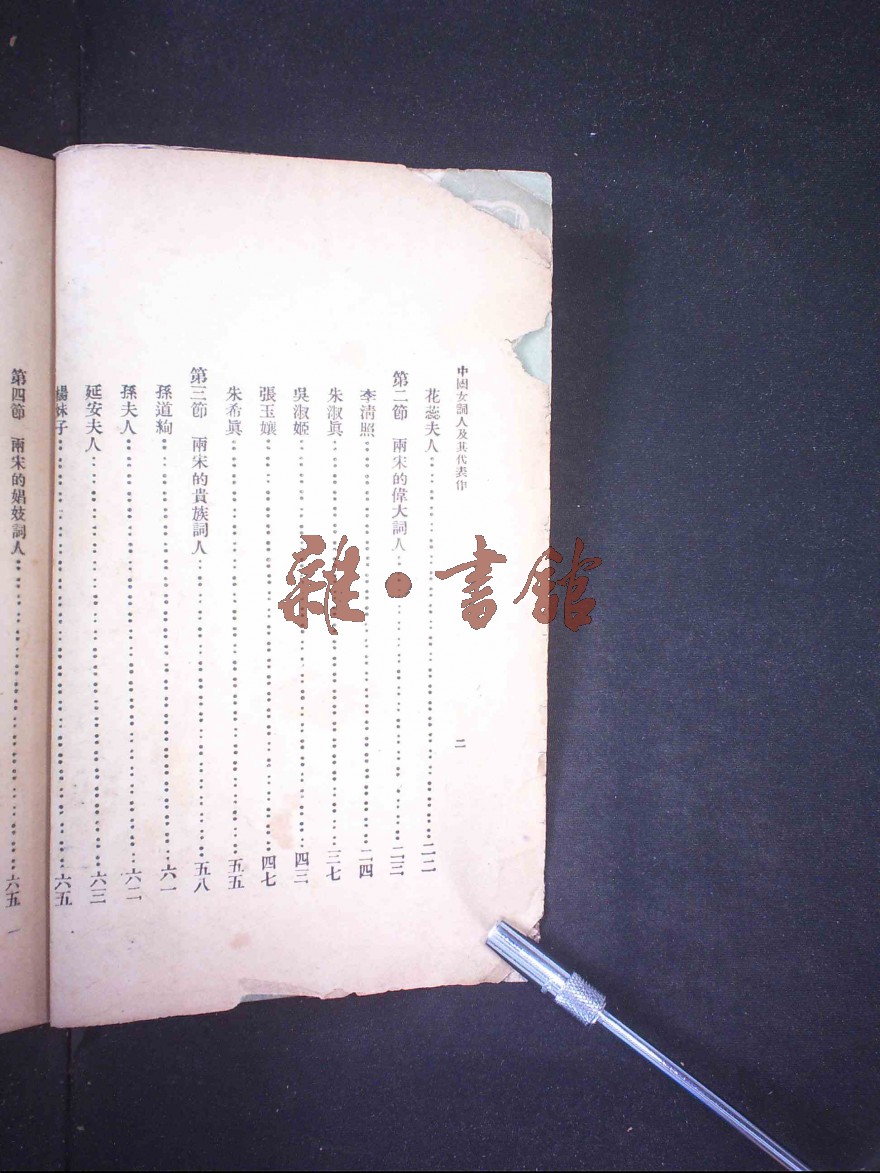 中國女詞人及其代表作
二
花蕊夫人……二二
第二節 兩宋的偉大詞人……二三
李清照……二四
朱淑眞……三七
吳淑姬……四三
張玉孃……四七
朱希眞……五五
第三節 兩宋的貴族詞人……五八
孫道絢……六一
孫夫人……六二
延安夫人……六三
楊妹子……六五
第四節 兩宋的娼妓詞人……六五
一
雜·書館